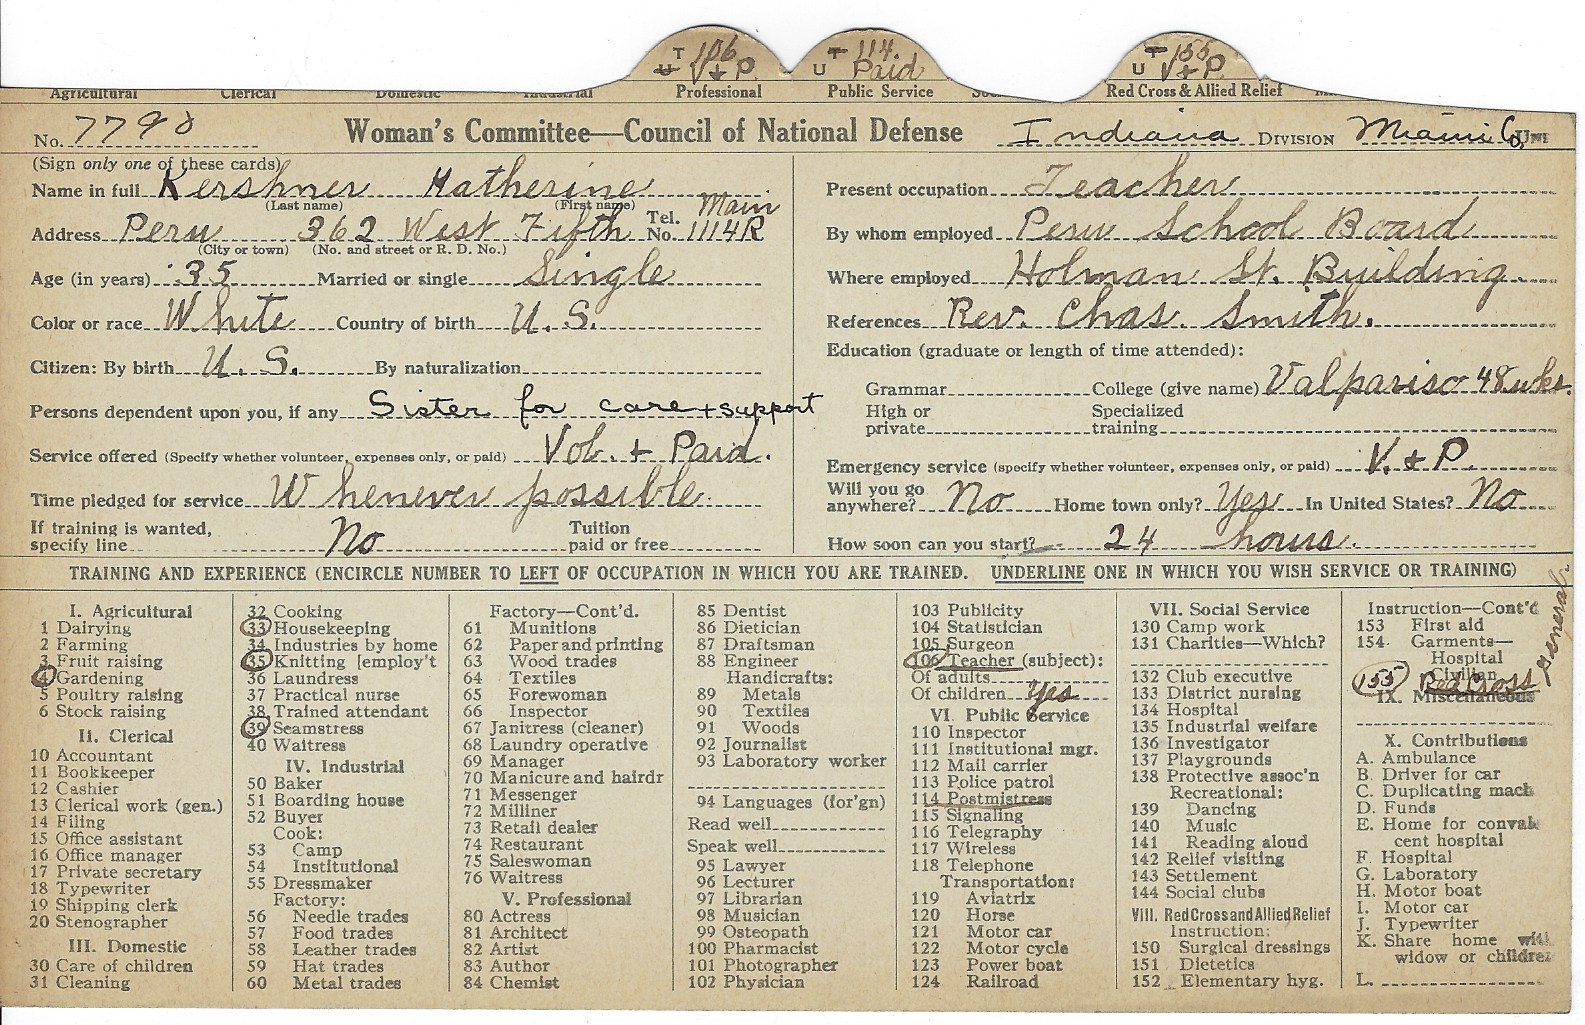 T 106 T 114. T 155
U V + P. U Paid U V + P.
Agricultural Clerical Domestic Industrial Professional Public Service Red Cross & Allied Relief
No. 7798 Woman's Committee—Council of National Defense Indiana DIVISION Miami Co. Unit
(Sign only one of these cards)
Name in full Kershner Katherine
(Last name) (First name)
Address Peru 362 West Fifth Tel. No. Main 1114R
(City or town) (No. and street or R. D. No.)
Age (in years) 35 Married or single Single
Color or race White Country of birth U. S.
Citizen: By birth U. S. By naturalization
Persons dependent upon you, if any Sister for care + support
Service offered (Specify whether volunteer, expenses only, or paid) Vol. + Paid.
Time pledged for service Whenever possible.
If training is wanted, Tuition
specify line No paid or free
Present occupation Teacher
By whom employed Peru School Board
Where employed Holman St. Building.
References Rev. Chas. Smith.
Education (graduate or length of time attended):
Grammar College (give name) Valpariso 48 wks.
High or Specialized
private training
Emergency service (specify whether volunteer, expenses only, or paid) V. + P.
Will you go
anywhere? No Home town only? Yes In United States? No
How soon can you start? 24 hours.
TRAINING AND EXPERIENCE (ENCIRCLE NUMBER TO LEFT OF OCCUPATION IN WHICH YOU ARE TRAINED. UNDERLINE ONE IN WHICH YOU WISH SERVICE OR TRAINING)
I. Agricultural
1 Dairying
2 Farming
3 Fruit raising
4 Gardening
5 Poultry raising
6 Stock raising
II. Clerical
10 Accountant
11 Bookkeeper
12 Cashier
13 Clerical work (gen.)
14 Filing
15 Office assistant
16 Office manager
17 Private secretary
18 Typewriter
19 Shipping clerk
20 Stenographer
III. Domestic
30 Care of children
31 Cleaning
32 Cooking
33 Housekeeping
34 Industries by home
35 Knitting [employ't
36 Laundress
37 Practical nurse
38 Trained attendant
39 Seamstress
40 Waitress
IV. Industrial
50 Baker
51 Boarding house
52 Buyer
Cook:
53 Camp
54 Institutional
55 Dressmaker
Factory:
56 Needle trades
57 Food trades
58 Leather trades
59 Hat trades
60 Metal trades
Factory—Cont'd.
61 Munitions
62 Paper and printing
63 Wood trades
64 Textiles
65 Forewoman
66 Inspector
67 Janitress (cleaner)
68 Laundry operative
69 Manager
70 Manicure and hairdr
71 Messenger
72 Milliner
73 Retail dealer
74 Restaurant
75 Saleswoman
76 Waitress
V. Professional
80 Actress
81 Architect
82 Artist
83 Author
84 Chemist
85 Dentist
86 Dietician
87 Draftsman
88 Engineer
Handicrafts:
89 Metals
90 Textiles
91 Woods
92 Journalist
93 Laboratory worker
94 Languages (for'gn)
Read well
Speak well
95 Lawyer
96 Lecturer
97 Librarian
98 Musician
99 Osteopath
100 Pharmacist
101 Photographer
102 Physician
103 Publicity
104 Statistician
105 Surgeon
106 Teacher (subject):
Of adults
Of children Yes
VI. Public Service
110 Inspector
111 Institutional mgr.
112 Mail carrier
113 Police patrol
114 Postmistress
115 Signaling
116 Telegraphy
117 Wireless
118 Telephone
Transportation:
119 Aviatrix
120 Horse
121 Motor car
122 Motor cycle
123 Power boat
124 Railroad
VII. Social Service
130 Camp work
131 Charities—Which?
132 Club executive
133 District nursing
134 Hospital
135 Industrial welfare
136 Investigator
137 Playgrounds
138 Protective assoc'n
Recreational:
139 Dancing
140 Music
141 Reading aloud
142 Relief visiting
143 Settlement
144 Social clubs
VIII. Red Cross and Allied Relief
Instruction:
150 Surgical dressings
151 Dietetics
152 Elementary hyg.
Instruction—Cont'd
153 First aid
154. Garments—
Hospital
Civilian
155 Red Cross General.
IX. Miscellaneous
X. Contributions
A. Ambulance
B. Driver for car
C. Duplicating mach
D. Funds
E. Home for conval
cent hospital
F. Hospital
G. Laboratory
H. Motor boat
I. Motor car
J. Typewriter
K. Share home with
widow or children
L.